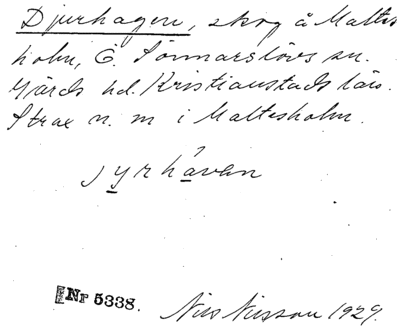 Djurhagen, skog å Maltes-
holm, Ö. Sönnarslövs sn.
Gärds hd. Kristianstads län.
Strax n. m i Maltesholm.
jyrhávan
Nr 5338.
Nils Nilsson 1929.